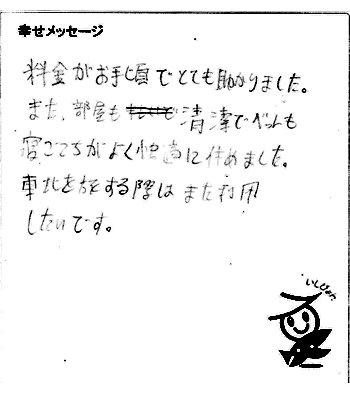 幸せメッセージ
料金がお手頃でとても助かりました。
また、部屋も清潔でベットも
寝ごこちがよく快適に休めました。
東北を旅する際はまた利用
したいです。